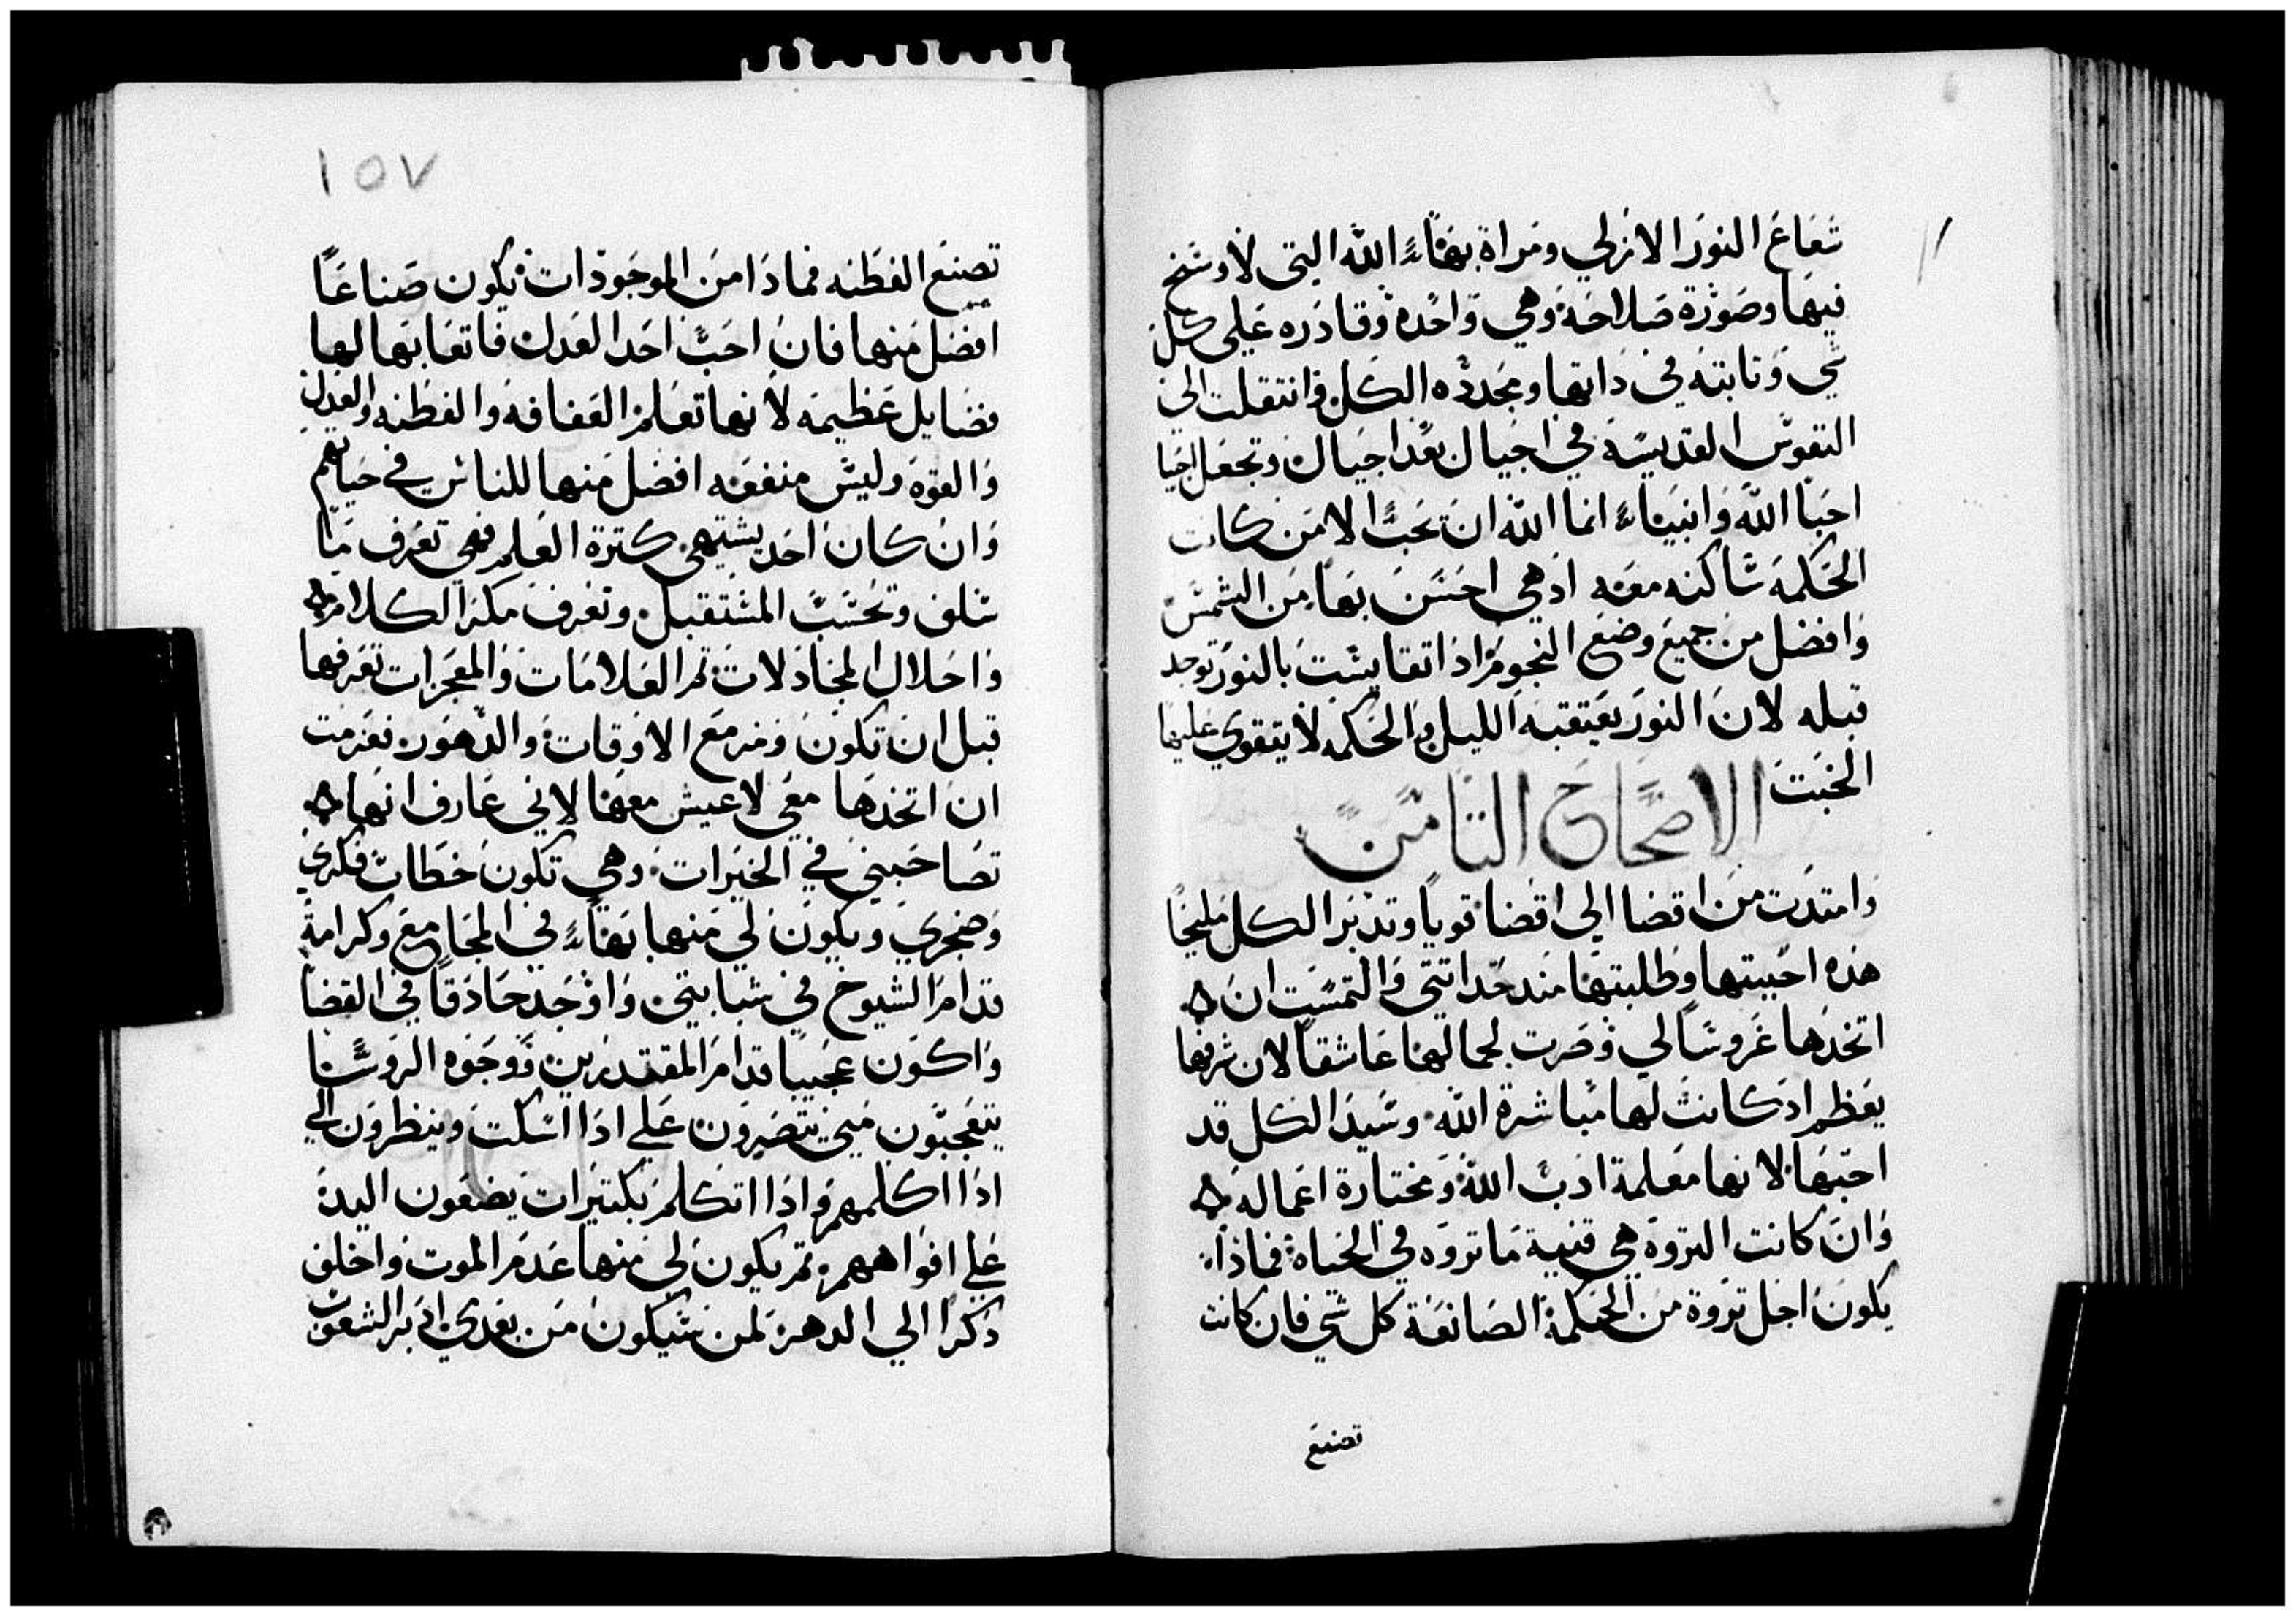 شعاع النور الازلي ومراة بهاء الله التي لا وسخ
فيها وصورة صلاحه وهي واحده وقادره على كل
شي وثابته في ذاتها ومجدده الكل وانتقلت الى
النفوس القديسه في اجيال بعد اجيال وتجعل احيا
احبا الله وانبياء انما الله ان تحب الا من كانت
الحكمه ساكنه معه اذ هي احسن بها من الشمس
وافضل من جميع وضع النجوم اذا تقايست بالنور توجد
قبله لان النور يعتقبه الليل والحكمه لا يتقوي عليها
الخبث
الاصحاح الثامن
وامتدت من اقصا الي اقصا قويا وتدبر الكل مليحا
هذه احببتها وطلبتها منذ حداثتي والتمست ان
اتخذها عروسا لي وصرت لجمالها عاشقا لان شرفها
يعظم اذ كانت لها مباشرة الله وسيد الكل قد
احبها لانها معلمة ادب الله ومختارة اعماله
وان كانت الثروة هي قنية ما ثروه في الحياة فماذا
يكون اجل ثروة من الحكمة الصانعة كل شي فان كانت
تصنع
١٥٧
تصنع الفطنه فماذا من الموجودات يكون صناعا
افضل منها فان احب احد العدل فاتعابها لها
فضايل عظيمه لانها تعلم العفافه والفطنه والعدل
والقوه وليس منفعه افضل منها للناس في حياتهم
وان كان احد يشتهي كثرة العلم فهي تعرف ما
سلف وتحسب المستقبل وتعرف مكر الكلام
واحلال المجادلات ثم العلامات والمعجزات تعرفها
قبل ان تكون ومرمع الاوقات والدهور فعزمت
ان اتخذها معي لاعيش معها لاني عارف انها
تصاحبني في الخيرات وهي تكون خطاب فكري
وضجري ويكون لي منها بهاء في المجامع وكرامة
قدام الشيوخ في شبابتي واوجد حاذقا في القضا
واكون عجيبا قدام المقتدرين ووجوه الروسا
يتعجبون مني يتصبرون علي اذا اسكت وينظرون الي
اذا اكلمهم واذا اتكلم بكثيرات يضعون اليد
علي افواههم ثم يكون لي منها عدم الموت واخلف
ذكرا الي الدهر لمن سيكون من بعدي ادبر الشعوب